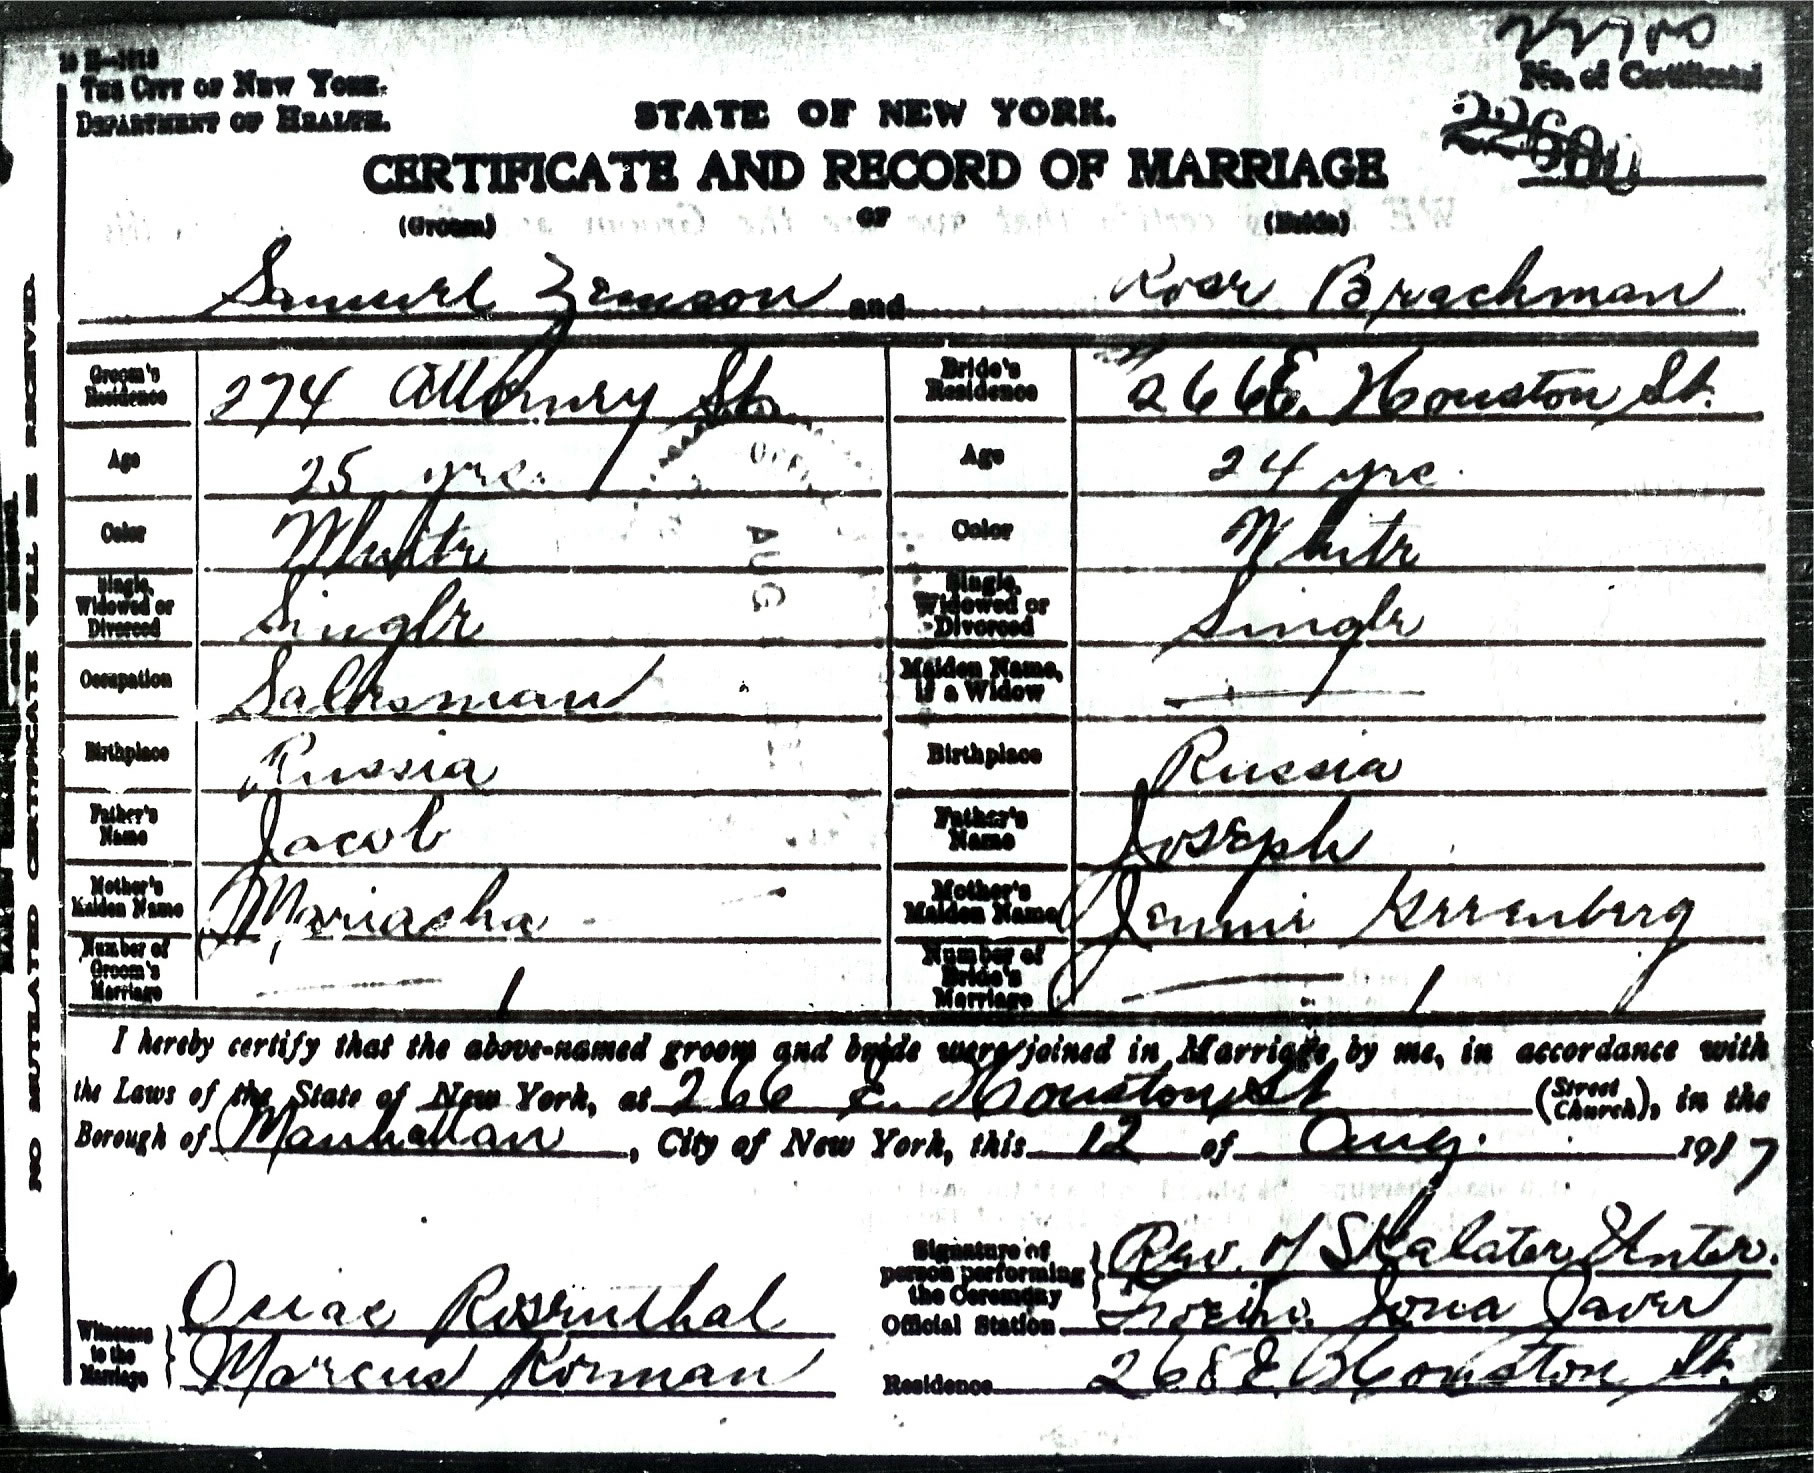 THE CITY OF NEW YORK.
DEPARTMENT OF HEALTH.
No. of Certificate
STATE OF NEW YORK.
CERTIFICATE AND RECORD OF MARRIAGE
(Groom) OF (Bride)
Samuel Zemson and Rose Brachman
Groom's Residence 274 Attorney St. Bride's Residence 266 E. Houston St.
Age 25 yrs. Age 24 yrs.
Color White Color White
Single, Widowed or Divorced Single Single, Widowed or Divorced Single
Occupation Salesman Maiden Name, if a Widow —
Birthplace Russia Birthplace Russia
Father's Name Jacob Father's Name Joseph
Mother's Maiden Name Mariasha Mother's Maiden Name Jennie Greenberg
Number of Groom's Marriage 1 Number of Bride's Marriage 1
I hereby certify that the above-named groom and bride were joined in Marriage by me, in accordance with
the Laws of the State of New York, at 266 E. Houston St (Street Church), in the
Borough of Manhattan, City of New York, this 12 of Aug. 1917
Signature of person performing the Ceremony Rev. of Skalater Unter.
Official Station Jona
Witnesses to the Marriage Rosenthal
Marcus Korman
Residence 268 E. Houston St.
NO MUTILATED CERTIFICATE WILL BE RECEIVED.
AUG